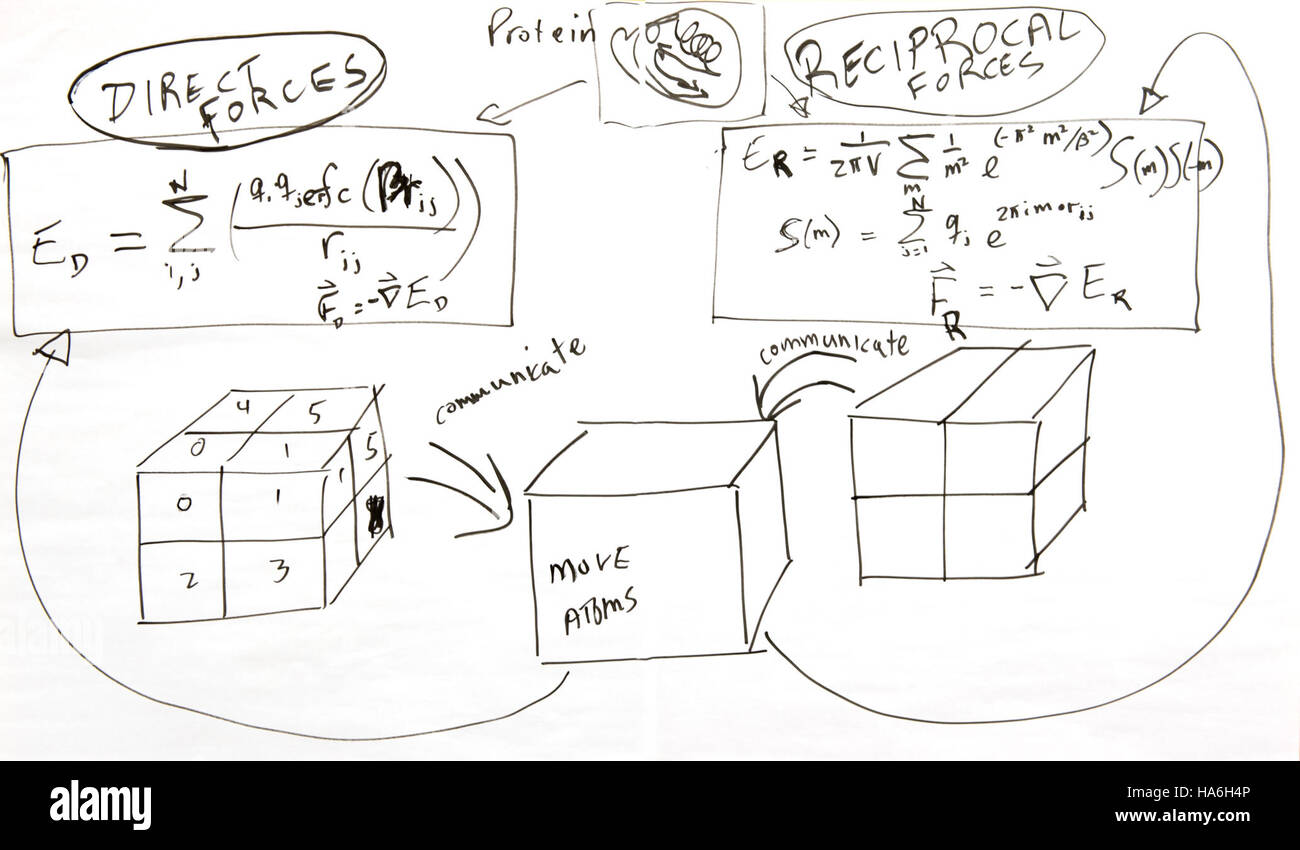 Protein
DIRECT
FORCES
RECIPROCAL
FORCES
E_D = Σ_{i,j}^{N} ( q_i q_j erfc(βr_{ij}) / r_{ij} )
F⃗_D = -∇⃗ E_D
E_R = 1/(2πV) Σ_m 1/m² e^{(-π² m²/β²)} S(m)S(-m)
S(m) = Σ_{j=1}^{N} q_j e^{2πim·r_{ij}}
F⃗_R = -∇⃗ E_R
communicate
communicate
4 5
0 1
0 1 1 5
2 3
MOVE
ATOMS
alamy
Image ID: HA6H4P
www.alamy.com